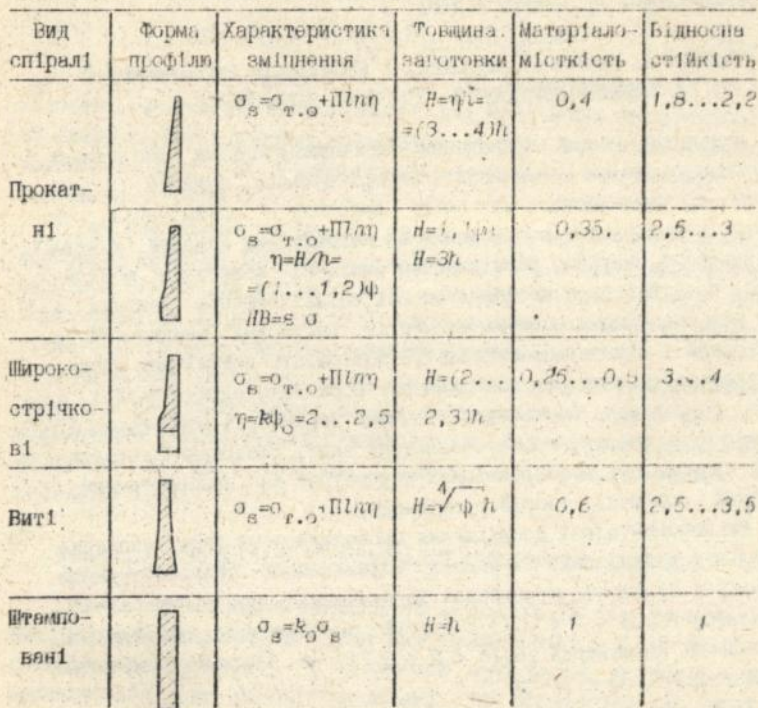 Вид спіралі | Форма профілю | Характеристика зміцнення | Товщина заготовки | Матеріало- місткість | Відносна стійкість
Прокат- ні
σ_s=σ_т.о+Πlnη | H=ηh= =(3...4)h | 0,4 | 1,8...2,2
σ_s=σ_т.о+Πlnη | H=1,1φh | 0,35. | 2,5...3
η=H/h= | H=3h
=(1...1,2)ψ
HB=ε σ
Широко- стрічко- ві
σ_s=σ_т.о+Πlnη | H=(2... 2,3)h | 0,25...0,5 | 3...4
η=kψ_о=2...2,5
Виті | σ_s=σ_т.о+Πlnη | H=∜ψ h | 0,6 | 2,5...3,5
Штампо- вані | σ_s=k_о σ_s | H=h | 1 | 1